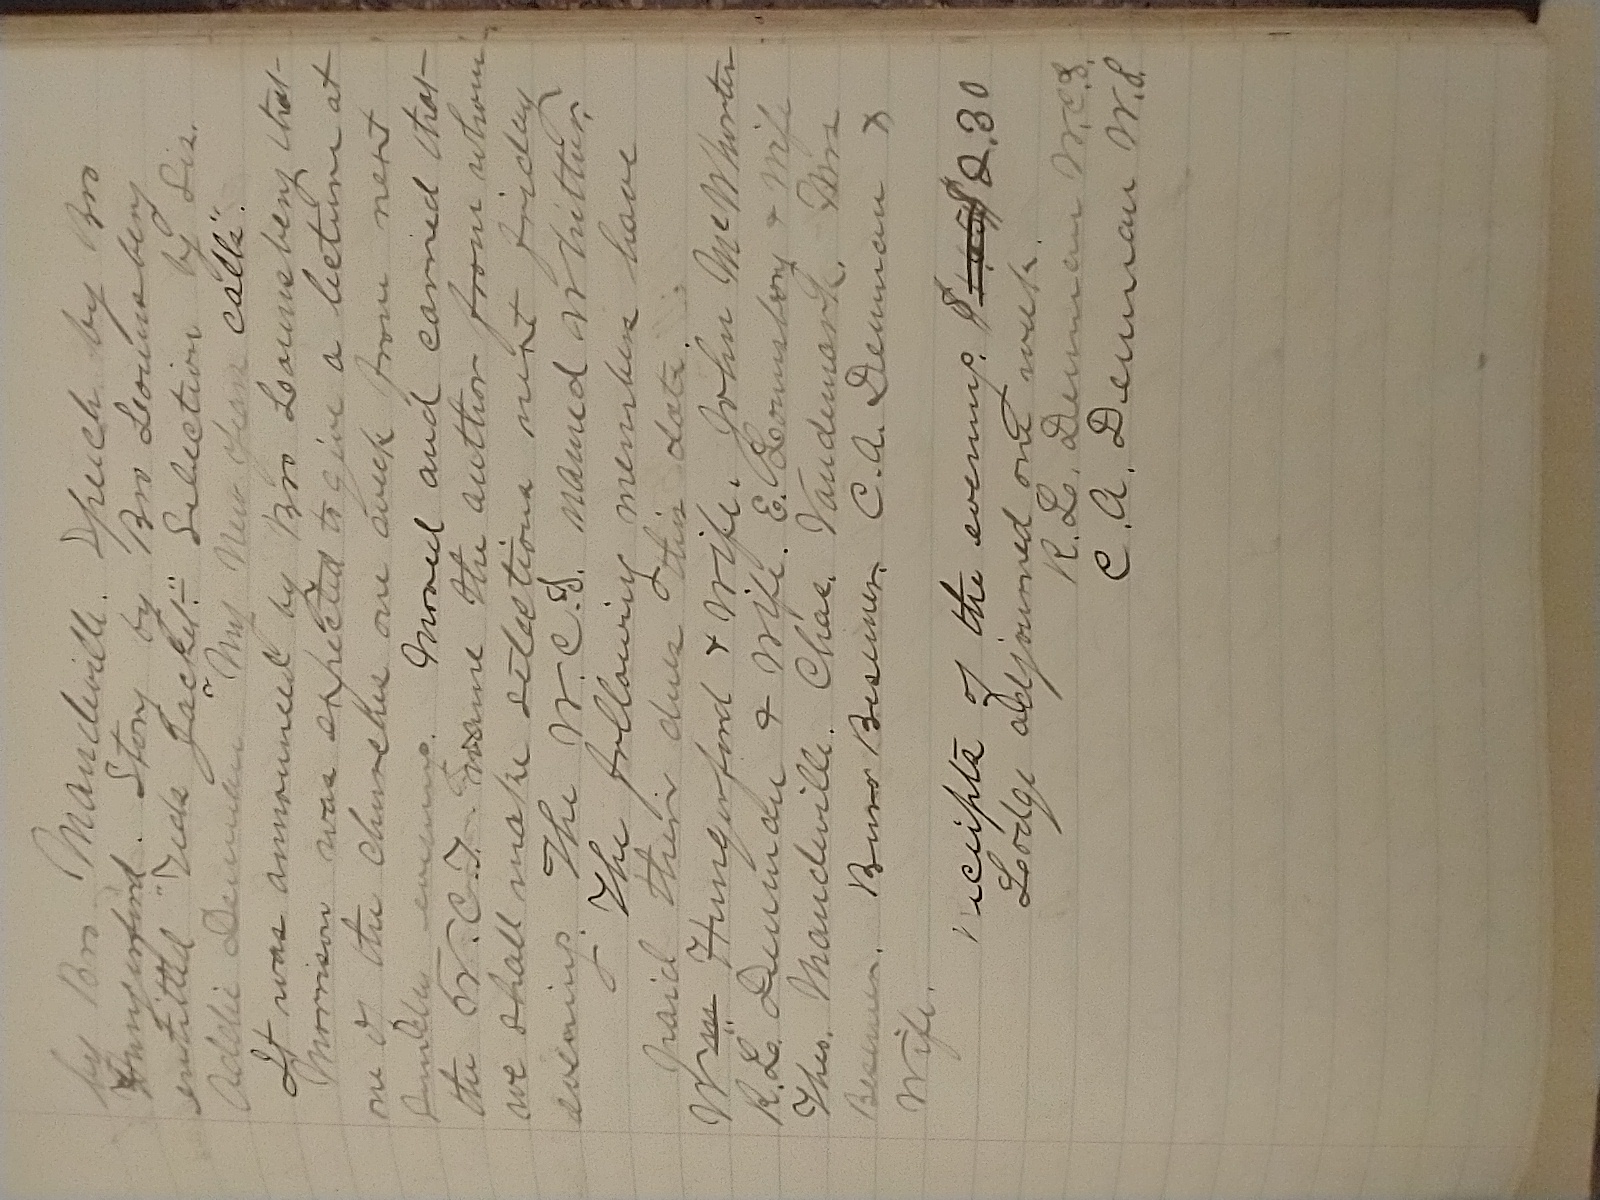 by Bro Mandeville. Speech by Bro
Hungerford. Story by Bro Lounsbery
entitled "Jacket." Selection by Sis.
Addie Denman "My New Years calls".
It was announced by Bro Lounsbery that
Morrison was expected to give a lecture at
one of the churches one week from next
Sunday evening. Moved and carried that
the W.C.T. name the author from whom
we shall make selections next friday
evening. The W.C.T. named Whittier.
The following members have
paid their dues this date.
Wm Hungerford & Wife. John McWhorter
R.L. Denman & Wife. E. Lounsbery & Wife
Theo. Mandeville. Chas. Vandemark. Mrs
Besemer. Burr Besemer. C.A. Denman &
Wife.
Receipts of the evening. $1.65 $2.30
Lodge adjourned one week.
R.L. Denman W.C.T.
C.A. Denman W.S.